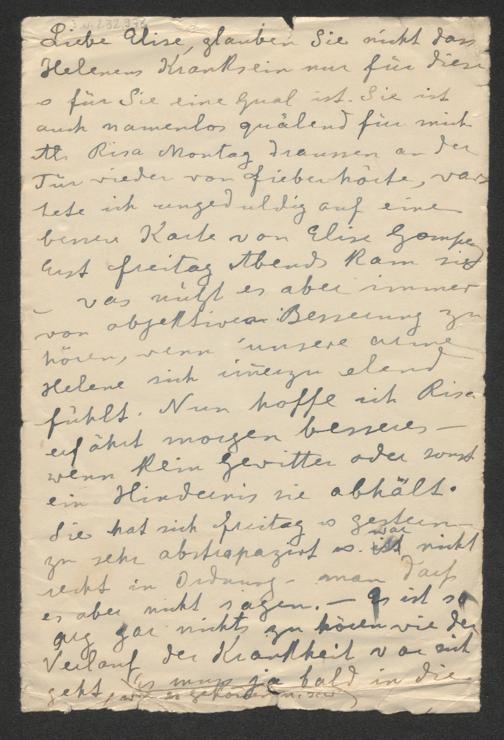 Liebe Elise, glauben Sie nicht dass
Helenens Kranksein nur für diese
u für Sie eine Qual ist. Sie ist
auch namenlos quälend für mich
Als Risa Montag draussen an der
Tür wieder von Fieber hörte, war
tete ich ungeduldig auf eine
bessere Karte von Elise Gomperz
Erst freitag Abends kam sie
– was nützt es aber immer
von objektiver Besserung zu
hören, wenn unsere arme
Helene sich immerzu elend
fühlt. Nun hoffe ich Risa
erfährt morgen besseres –
wenn kein Gewitter oder sonst
ein Hindernis sie abhält.
Sie hat sich freitag u gestern
zu sehr abstrapaziert u. war nicht
recht in Ordnung – man darf
es aber nicht sagen. – Es ist so
arg gar nichts zu hören wie der
Verlauf der Krankheit vor sich
geht, es muss ja bald in die